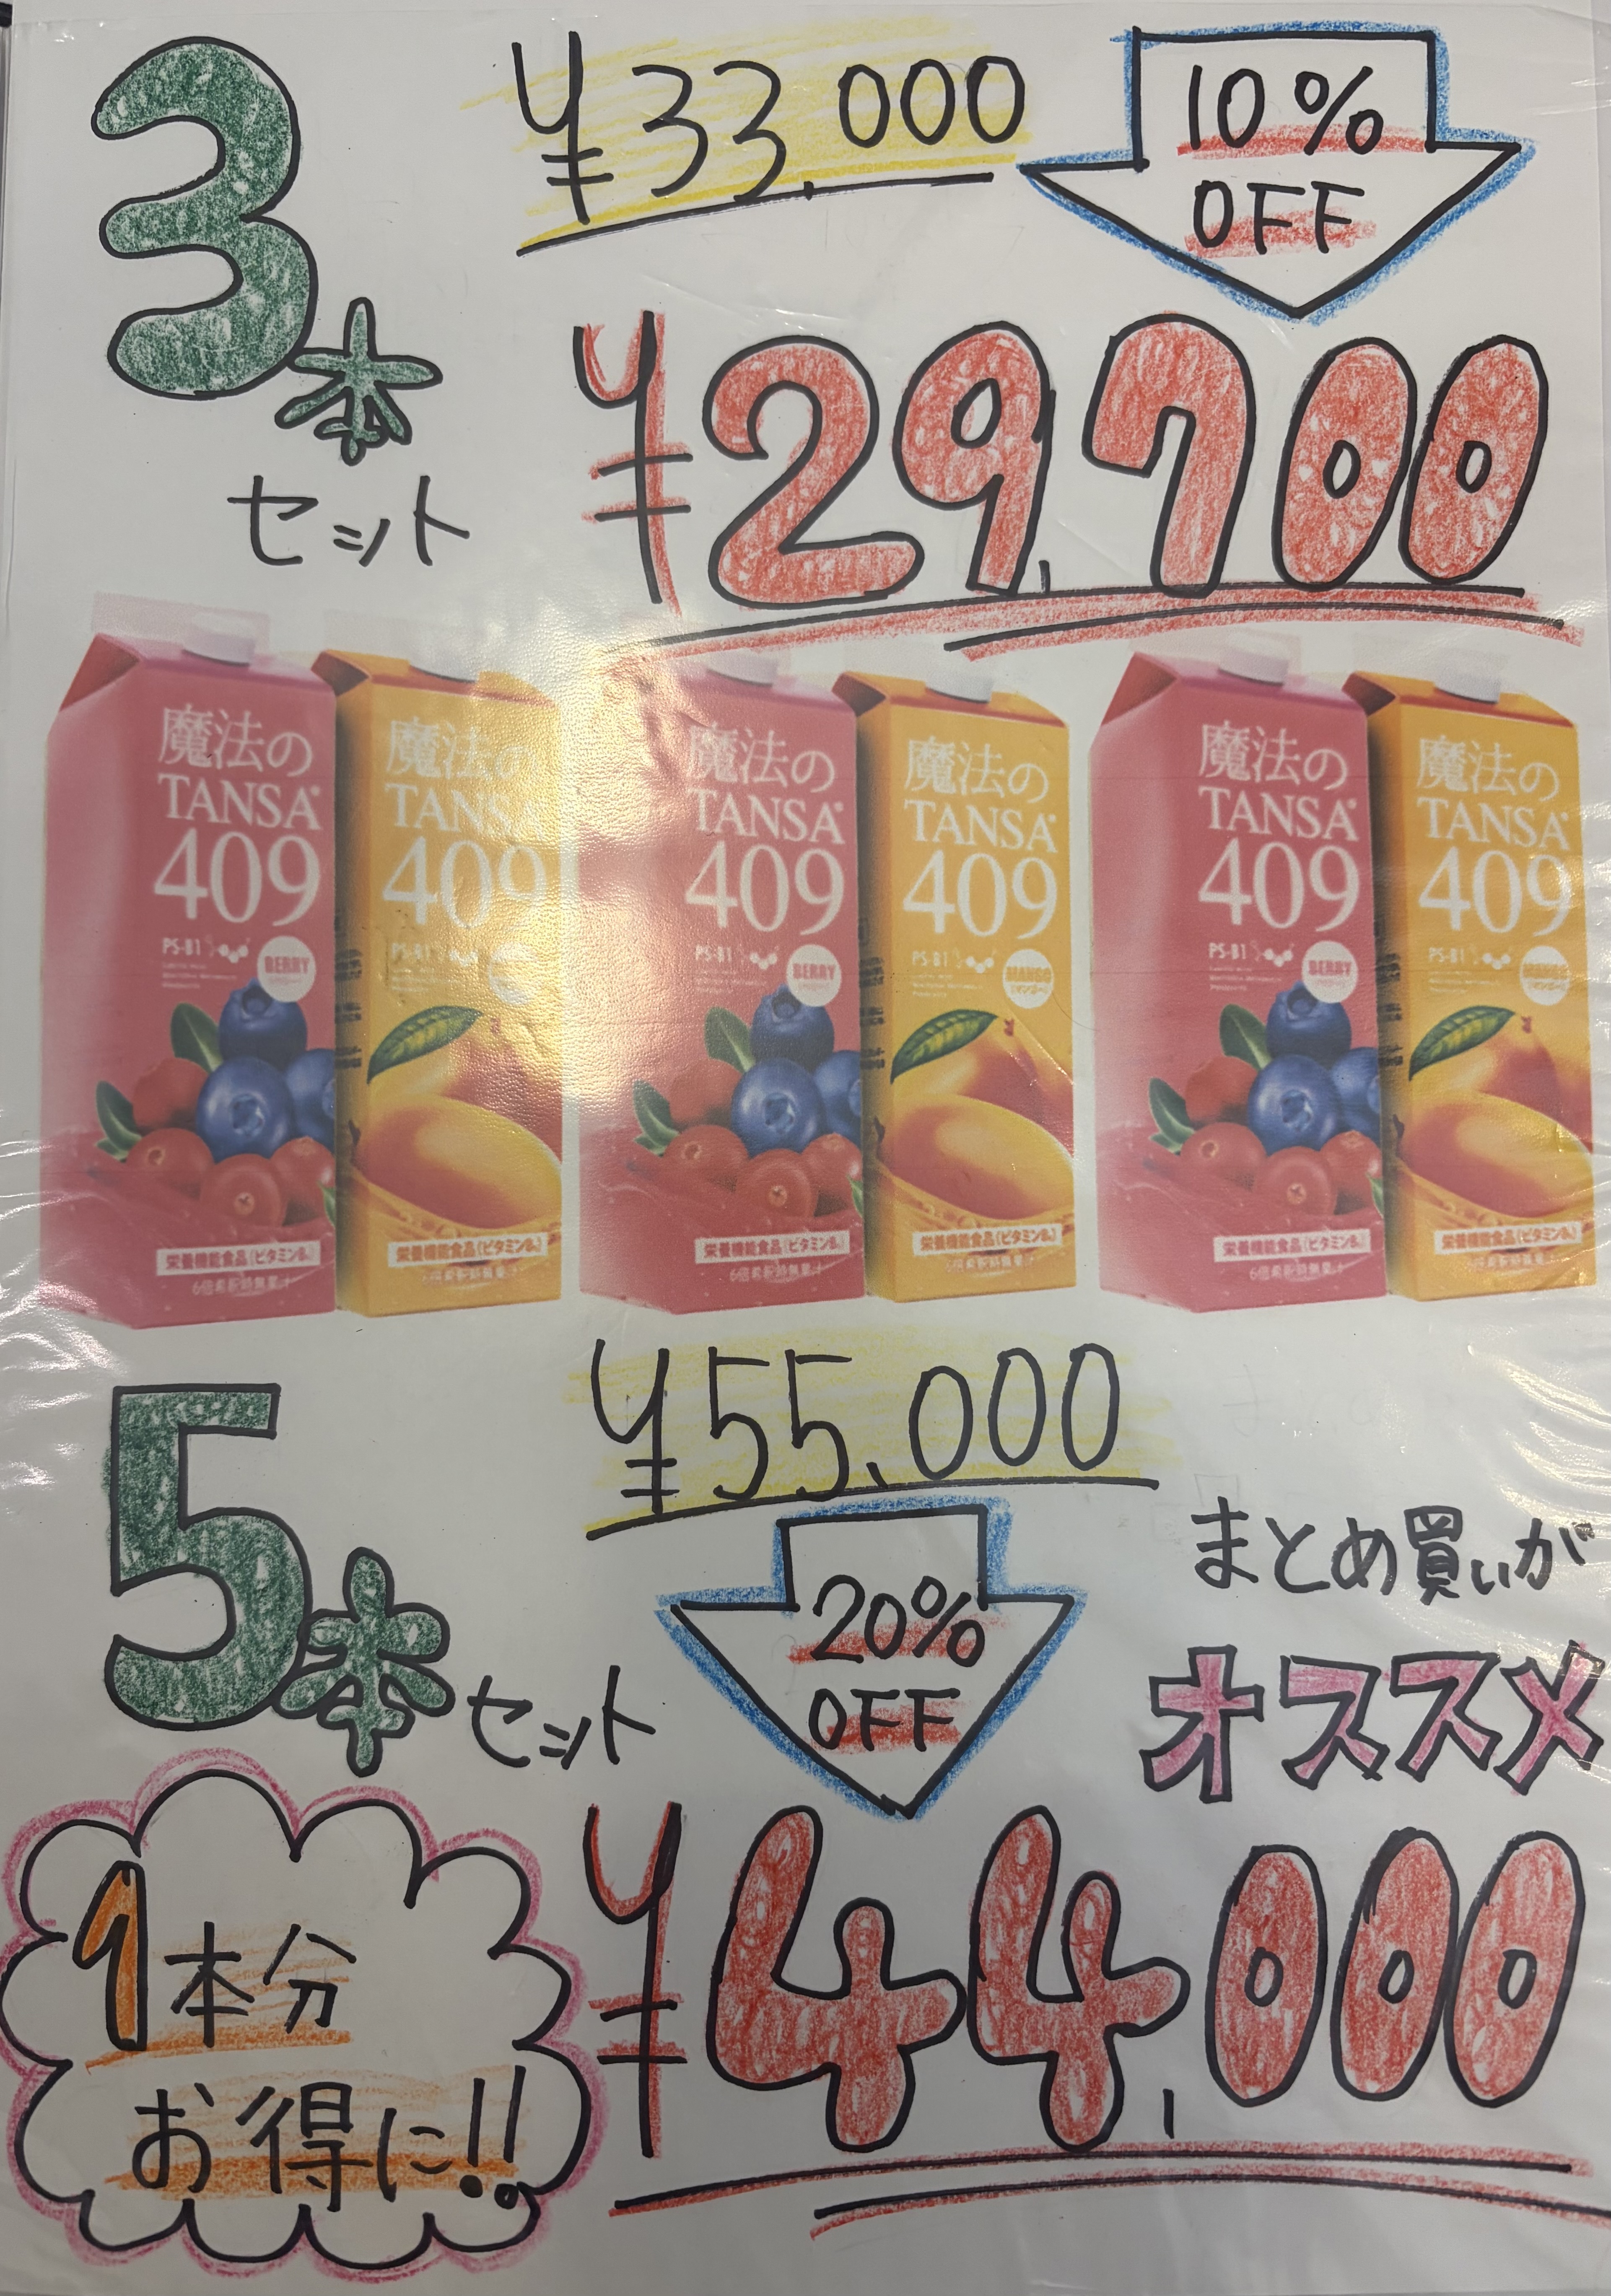 3本
セット
¥33,000
10%
OFF
¥29,700
魔法の
TANSA
409
PS-B1
BERRY
栄養機能食品(ビタミンB₆)
魔法の
TANSA
409
PS-B1
栄養機能食品(ビタミンB₆)
魔法の
TANSA
409
PS-B1
BERRY
栄養機能食品(ビタミンB₆)
魔法の
TANSA
409
PS-B1
MANGO
栄養機能食品(ビタミンB₆)
魔法の
TANSA
409
PS-B1
BERRY
栄養機能食品(ビタミンB₆)
魔法の
TANSA
409
PS-B1
MANGO
栄養機能食品(ビタミンB₆)
5本セット
¥55,000
20%
OFF
まとめ買いが
オススメ
¥44,000
1本分
お得に!!